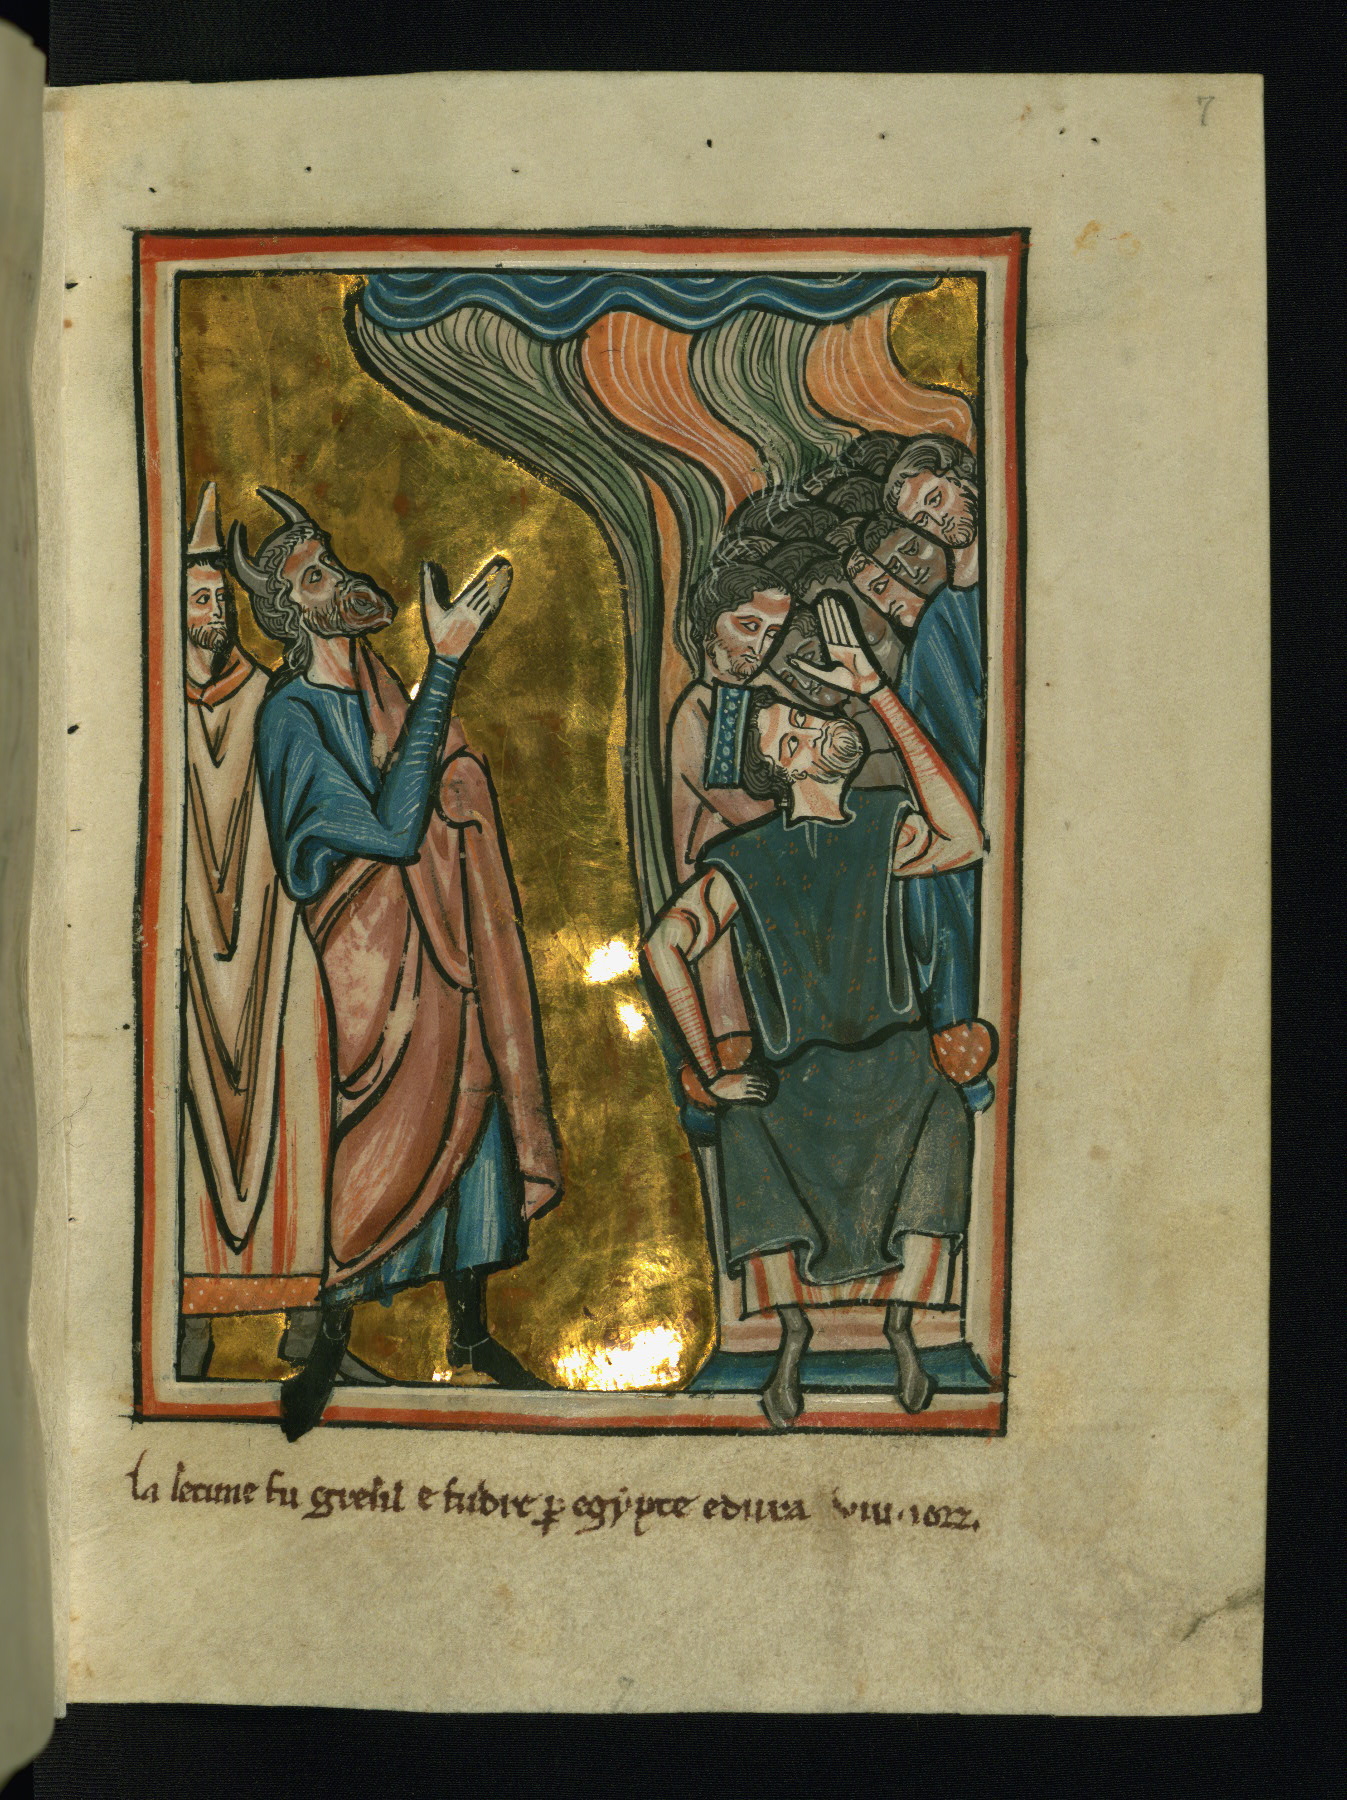 7
la setime fu gresil e fudre p egypte e dura viii · iorz.